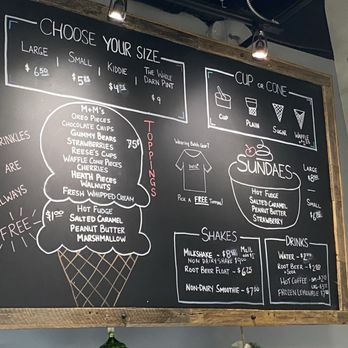 CHOOSE YOUR SIZE
LARGE
$6.50
SMALL
KIDDIE
THE WHOLE
DARN PINT
$9
CUP OR CONE
CUP
PLAIN
SUGAR
WAFFLE
M&M'S
OREO PIECES
CHOCOLATE CHIPS
GUMMY BEARS
STRAWBERRIES
REESE'S CUPS
WAFFLE CONE PIECES
CHERRIES
HEATH PIECES
WALNUTS
FRESH WHIPPED CREAM
75¢
TOPPINGS
$1.00
HOT FUDGE
SALTED CARAMEL
PEANUT BUTTER
MARSHMALLOW
ARE
ALWAYS
FREE
PICK A FREE TOPPING!
SUNDAES
HOT FUDGE
SALTED CARAMEL
PEANUT BUTTER
STRAWBERRY
LARGE
SMALL
SHAKES
MILKSHAKE -
NON DAIRY SHAKE
ROOT BEER FLOAT - $6.75
NON-DAIRY SMOOTHIE - $7.50
DRINKS
WATER -
ROOT BEER -
HOT COFFEE -
FROZEN LEMONADE